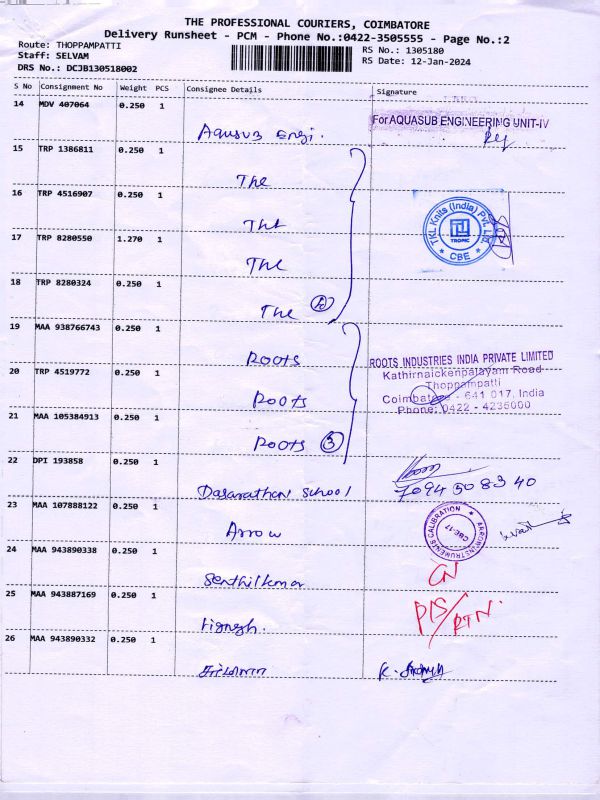 THE PROFESSIONAL COURIERS, COIMBATORE
Delivery Runsheet - PCM - Phone No.:0422-3505555 - Page No.:2
Route: THOPPAMPATTI
RS No.: 1305180
Staff: SELVAM
RS Date: 12-Jan-2024
DRS No.: DCJB130518002
S No Consignment No Weight PCS Consignee Details Signature
14 MDV 407064 0.250 1
For AQUASUB ENGINEERING UNIT-IV
Aquasub Engi.
15 TRP 1386811 0.250 1
The
16 TRP 4516907 0.250 1
The
TKL Knits (India) Pvt. Ltd.
TROPIC
★ CBE ★
17 TRP 8280550 1.270 1
The
18 TRP 8280324 0.250 1
The
19 MAA 938766743 0.250 1
Roots
ROOTS INDUSTRIES INDIA PRIVATE LIMITED
20 TRP 4519772 0.250 1
Kathirnaickenpalayam Road
Thoppampatti
Roots
Coimbatore - 641 017, India
Phone: 0422 - 4235000
21 MAA 105384913 0.250 1
Roots 3
22 DPI 193858 0.250 1
Dasarathan School
7094508340
23 MAA 107888122 0.250 1
Arrow
ARROW INSTRUMENTS CALIBRATION
CBE-17
24 MAA 943890338 0.250 1
Senthilkumar
CN
25 MAA 943887169 0.250 1
Vignesh.
PIS/RTN.
26 MAA 943890332 0.250 1